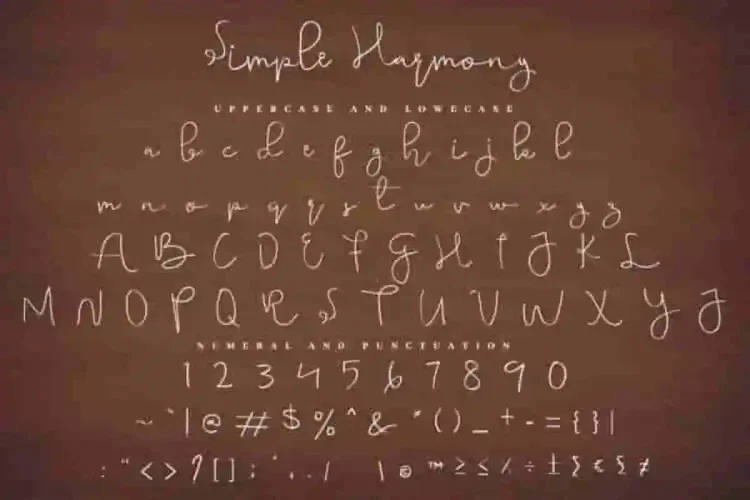 Simple Harmony
UPPERCASE AND LOWECASE
a b c d e f g h i j k l
m n o p q r s t u v w x y z
A B C D E F G H I J K L
M N O P Q R S T U V W X Y Z
NUMERAL AND PUNCTUATION
1 2 3 4 5 6 7 8 9 0
~ ` | @ # $ % ^ & * ( ) _ + - = { } |
: " < > ? [ ] ; ' , . / \ © ™ ≥ ≤ ÷ ± € ≠